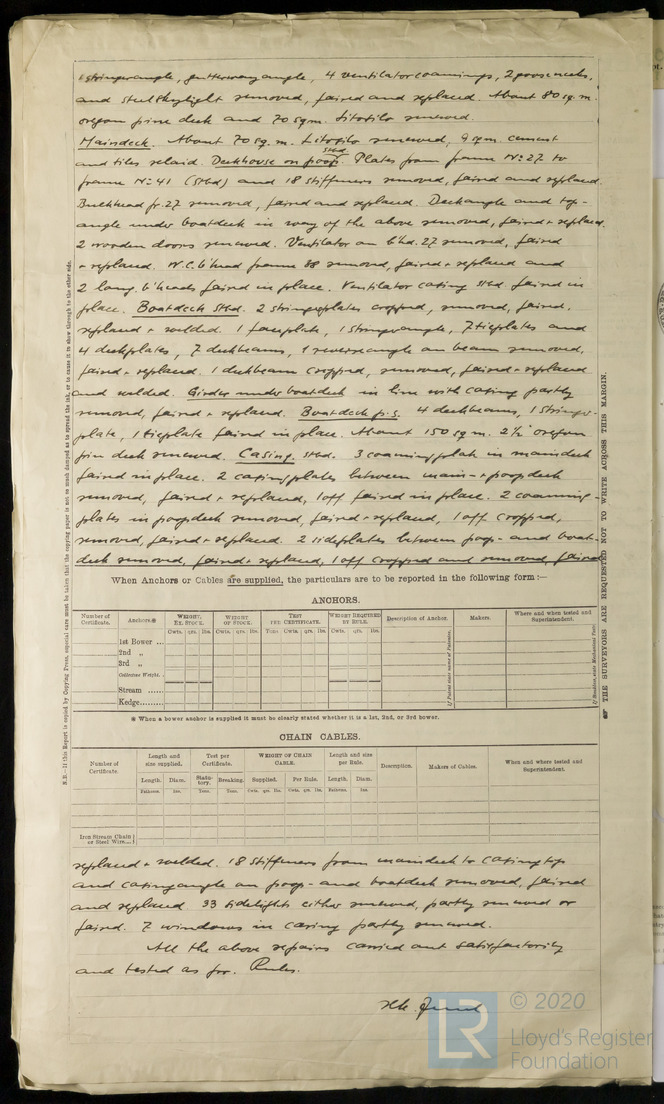 stringerangle, gutterwayangle, 4 ventilatorcoamings, 2 goosenecks,
and steelskylight removed, faired and replaced. About 80 sq.m.
oregon pine deck and 70 sqm. Litosilo renewed.
Maindeck. About 70 sq.m. Litosilo renewed, 9 sqm. cement
and tiles relaid. Deckhouse on poop Stbd. Plates from frame No 27 to
frame No 41 (Stbd) and 18 stiffeners removed, faired and replaced.
Bulkhead fr. 27 removed, faired and replaced. Deckangle and top-
angle under boatdeck in way of the above removed, faired + replaced.
2 wooden doors renewed. Ventilator on b'hd. 27 removed, faired
+ replaced. W.C. b'head frame 38 removed, faired + replaced and
2 long. b'heads faired in place. Ventilator casing stbd. faired in
place. Boatdeck Stbd. 2 stringerplates cropped, removed, faired,
replaced + welded. 1 faceplate, 1 stringerangle, 7 tieplates and
4 deckplates, 7 deckbeams, 1 reverseangle on beam removed,
faired + replaced. 1 deckbeam cropped, removed, faired + replaced
and welded. Girder under boatdeck in line with casing partly
removed, faired + replaced. Boatdeck p.s. 4 deckbeams, 1 stringer-
plate, 1 tieplate faired in place. About 150 sq m. 2½" oregon
pine deck renewed. Casing stbd. 3 coamingplates in maindeck
faired in place. 2 casingplates between main- + poopdeck
removed, faired + replaced, 1 off faired in place. 2 coaming-
plates in poopdeck removed, faired + replaced, 1 off cropped,
removed, faired + replaced. 2 sideplates between poop- and boat-
deck removed, faired + replaced, 1 off cropped and removed, faired
When Anchors or Cables are supplied, the particulars are to be reported in the following form:—
ANCHORS.
Number of Certificate. Anchors.* WEIGHT, EX. STOCK. WEIGHT OF STOCK. TEST PER CERTIFICATE. WEIGHT REQUIRED BY RULE. Description of Anchor. Makers. Where and when tested and Superintendent.
Cwts. qrs. lbs. Cwts. qrs. lbs. Tons. Cwts. qrs. lbs. Cwts. qrs. lbs.
1st Bower ...
2nd „
3rd „
Collective Weight.
Stream ......
Kedge........
* When a bower anchor is supplied it must be clearly stated whether it is a 1st, 2nd, or 3rd bower.
CHAIN CABLES.
Number of Certificate. Length and size supplied. Test per Certificate. WEIGHT OF CHAIN CABLE. Length and size per Rule. Description. Makers of Cables. When and where tested and Superintendent.
Length. Diam. Statutory. Breaking. Supplied. Per Rule. Length. Diam.
Fathoms. Ins. Tons. Tons. Cwts. qrs. lbs. Cwts. qrs. lbs. Fathoms. Ins.
Iron Stream Chain or Steel Wire...
replaced + welded. 18 stiffeners from maindeck to casingtop
and casingangle on poop- and boatdeck removed, faired
and replaced 33 sidelights either renewed, partly renewed or
faired. 7 windows in casing partly renewed.
All the above repairs carried out satisfactorily
and tested as per. Rules.
N.B.—If this Report is copied by Copying Press, especial care must be taken that the copying paper is not so much damped as to spread the ink, or to cause it to show through to the other side.
THE SURVEYORS ARE REQUESTED NOT TO WRITE ACROSS THIS MARGIN.
LR
© 2020
Lloyd's Register
Foundation